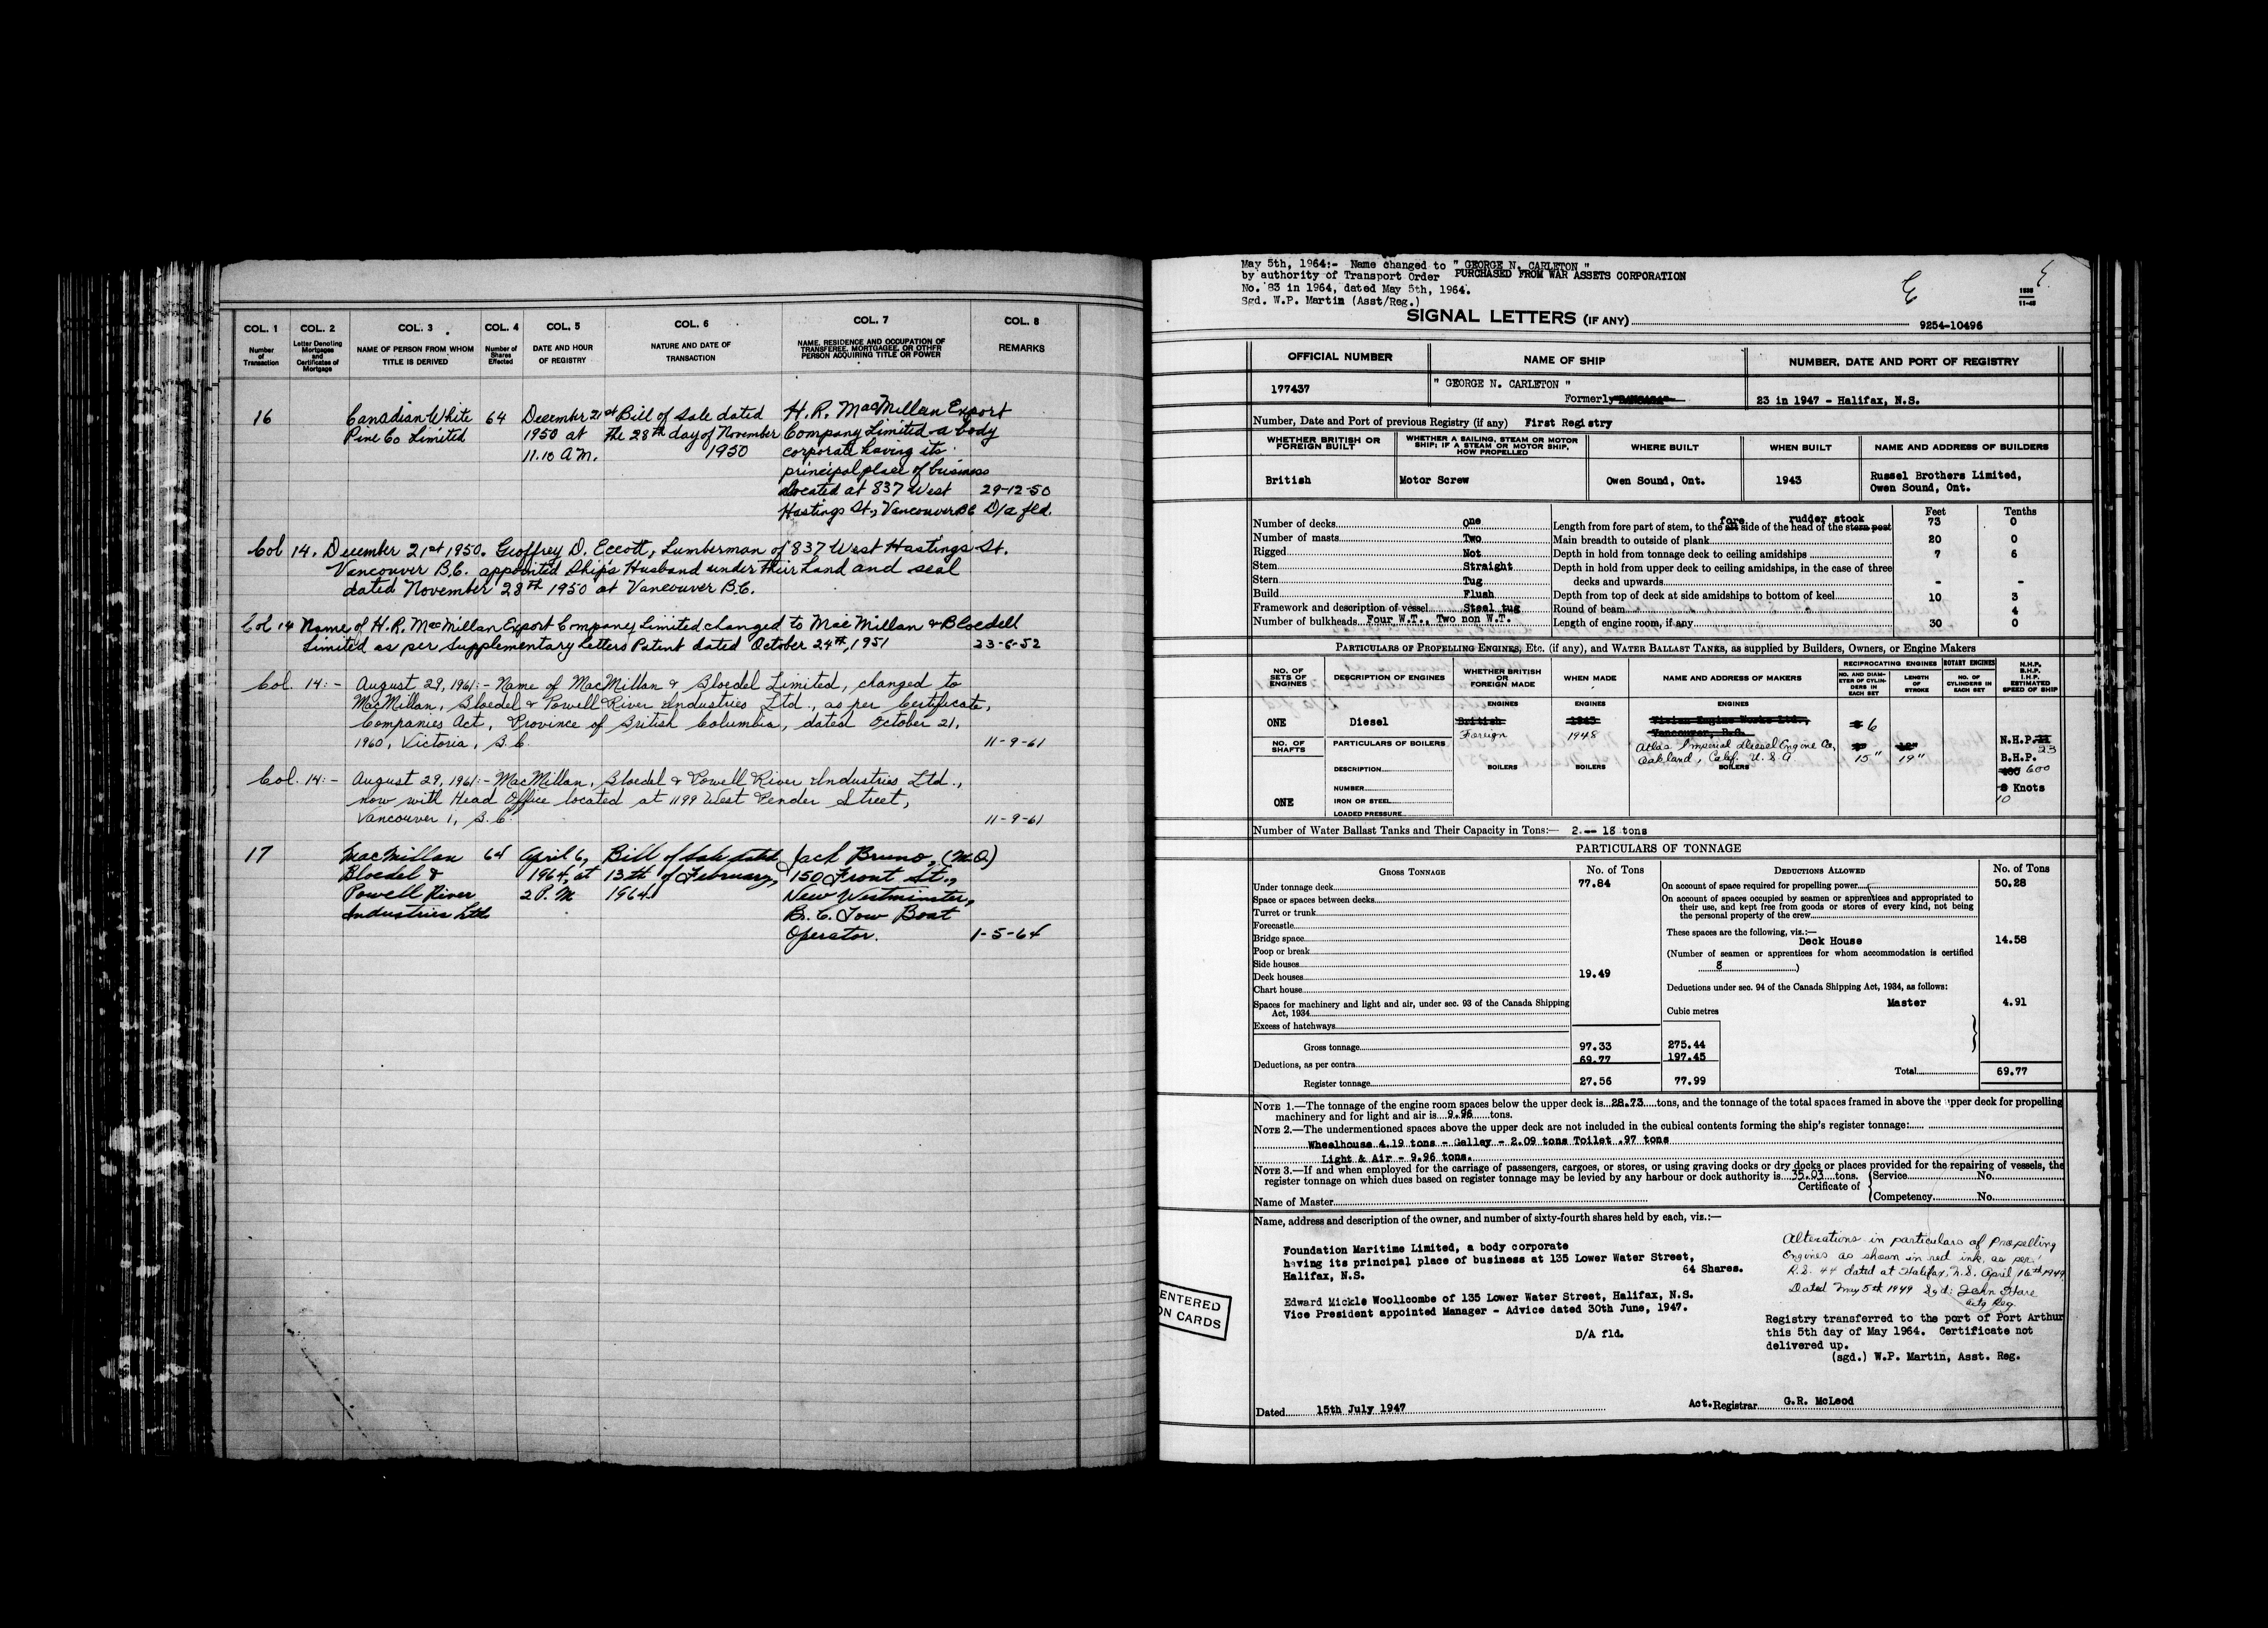 COL. 1 COL. 2 COL. 3 COL. 4 COL. 5 COL. 6 COL. 7 COL. 8
Number of Transaction
Letter Denoting Mortgages and Certificates of Mortgage
NAME OF PERSON FROM WHOM TITLE IS DERIVED
Number of Shares Effected
DATE AND HOUR OF REGISTRY
NATURE AND DATE OF TRANSACTION
NAME, RESIDENCE AND OCCUPATION OF TRANSFEREE, MORTGAGEE, OR OTHER PERSON ACQUIRING TITLE OR POWER
REMARKS
16 Canadian White 64 December 21st Bill of Sale dated H. R. MacMillan Export
Pine Co Limited 1950 at the 28th day of November Company Limited a body
11.10 A.M. 1950 corporate having its
principal place of business
located at 837 West 29-12-50
Hastings St., Vancouver BC D/a fld.
Col 14. December 21st 1950. Geoffrey D. Eccott, Lumberman of 837 West Hastings St.
Vancouver B.C. appointed Ship's Husband under their hand and seal
dated November 28th 1950 at Vancouver B.C.
Col 14 Name of H.R. MacMillan Export Company Limited changed to MacMillan & Bloedell
Limited as per Supplementary Letters Patent dated October 24th, 1951 23-6-52
Col. 14:- August 29, 1961:- Name of MacMillan & Bloedel Limited, changed to
MacMillan, Bloedel & Powell River Industries Ltd., as per Certificate,
Companies Act, Province of British Columbia, dated October 21,
1960, Victoria, B.C. 11-9-61
Col. 14:- August 29, 1961:- MacMillan, Bloedel & Powell River Industries Ltd.,
now with Head Office located at 1199 West Pender Street,
Vancouver 1, B.C. 11-9-61
17 MacMillan 64 April 6, Bill of Sale dated Jack Bruno, (M.O.)
Bloedel & 1964, at 13th of February, 150 Front St.,
Powell River 2 P.M 1964 New Westminster,
Industries Ltd B.C. Tow Boat
Operator. 1-5-64
May 5th, 1964:- Name changed to " GEORGE N. CARLETON "
by authority of Transport Order PURCHASED FROM WAR ASSETS CORPORATION
No. 83 in 1964, dated May 5th, 1964.
Sgd. W.P. Martin (Asst/Reg.)
SIGNAL LETTERS (IF ANY)
9254-10496
OFFICIAL NUMBER NAME OF SHIP NUMBER, DATE AND PORT OF REGISTRY
177437 " GEORGE N. CARLETON "
Formerly 23 in 1947 - Halifax, N.S.
Number, Date and Port of previous Registry (if any) First Registry
WHETHER BRITISH OR FOREIGN BUILT
WHETHER A SAILING, STEAM OR MOTOR SHIP; IF A STEAM OR MOTOR SHIP, HOW PROPELLED
WHERE BUILT WHEN BUILT NAME AND ADDRESS OF BUILDERS
British Motor Screw Owen Sound, Ont. 1943 Russel Brothers Limited,
Owen Sound, Ont.
Feet Tenths
Number of decks One Length from fore part of stem, to the aft fore side of the head of the stern post rudder stock 73 0
Number of masts Two Main breadth to outside of plank 20 0
Rigged Not Depth in hold from tonnage deck to ceiling amidships 7 6
Stem Straight Depth in hold from upper deck to ceiling amidships, in the case of three
Stern Tug decks and upwards - -
Build Flush Depth from top of deck at side amidships to bottom of keel 10 3
Framework and description of vessel Steel tug Round of beam 4
Number of bulkheads Four W.T., Two non W.T. Length of engine room, if any 30 0
PARTICULARS OF PROPELLING ENGINES, Etc. (if any), and WATER BALLAST TANKS, as supplied by Builders, Owners, or Engine Makers
NO. OF SETS OF ENGINES
DESCRIPTION OF ENGINES
WHETHER BRITISH OR FOREIGN MADE
WHEN MADE
NAME AND ADDRESS OF MAKERS
RECIPROCATING ENGINES ROTARY ENGINES
NO. AND DIAMETER OF CYLINDERS IN EACH SET
LENGTH OF STROKE
NO. OF CYLINDERS IN EACH SET
N.H.P. B.H.P. I.H.P. ESTIMATED SPEED OF SHIP
ENGINES ENGINES ENGINES
ONE Diesel British 1943 Vivian Engine Works Ltd., 6
Vancouver, B.C.
Foreign 1948 Atlas Imperial Diesel Engine Co, 15" 19"
Oakland, Calif. U.S.A
N.H.P. 23
B.H.P.
600
Knots
10
NO. OF SHAFTS PARTICULARS OF BOILERS
BOILERS BOILERS BOILERS
DESCRIPTION
NUMBER
ONE IRON OR STEEL
LOADED PRESSURE
Number of Water Ballast Tanks and Their Capacity in Tons:— 2 -- 18 tons
PARTICULARS OF TONNAGE
GROSS TONNAGE No. of Tons DEDUCTIONS ALLOWED No. of Tons
Under tonnage deck 77.84 On account of space required for propelling power 50.28
Space or spaces between decks
On account of spaces occupied by seamen or apprentices and appropriated to
their use, and kept free from goods or stores of every kind, not being
the personal property of the crew
Turret or trunk
Forecastle
These spaces are the following, viz.:—
Bridge space Deck House 14.58
Poop or break (Number of seamen or apprentices for whom accommodation is certified
Side houses 8 )
Deck houses 19.49
Chart house Deductions under sec. 94 of the Canada Shipping Act, 1934, as follows:
Spaces for machinery and light and air, under sec. 93 of the Canada Shipping
Act, 1934
Master 4.91
Cubic metres
Excess of hatchways
Gross tonnage 97.33 275.44
Deductions, as per contra 69.77 197.45
Total 69.77
Register tonnage 27.56 77.99
NOTE 1.—The tonnage of the engine room spaces below the upper deck is 28.73 tons, and the tonnage of the total spaces framed in above the upper deck for propelling
machinery and for light and air is 9.96 tons.
NOTE 2.—The undermentioned spaces above the upper deck are not included in the cubical contents forming the ship's register tonnage:
Wheelhouse 4.19 tons - Galley - 2.09 tons Toilet .97 tons
Light & Air - 9.96 tons.
NOTE 3.—If and when employed for the carriage of passengers, cargoes, or stores, or using graving docks or dry docks or places provided for the repairing of vessels, the
register tonnage on which dues based on register tonnage may be levied by any harbour or dock authority is 35.03 tons.
Certificate of Service No.
Competency No.
Name of Master
Name, address and description of the owner, and number of sixty-fourth shares held by each, viz.:—
Foundation Maritime Limited, a body corporate
having its principal place of business at 135 Lower Water Street,
Halifax, N.S. 64 Shares.
Edward Mickle Woollcombe of 135 Lower Water Street, Halifax, N.S.
Vice President appointed Manager - Advice dated 30th June, 1947.
D/A fld.
Alterations in particulars of Propelling
Engines as shown in red ink, as per
R.S. 44 dated at Halifax, N.S. April 16th 1949
Dated May 5th 1949 Sgd: John
Actg Reg.
Registry transferred to the port of Port Arthur
this 5th day of May 1964. Certificate not
delivered up.
(sgd.) W.P. Martin, Asst. Reg.
ENTERED
ON CARDS
Dated 15th July 1947 Act. Registrar G.R. McLeod